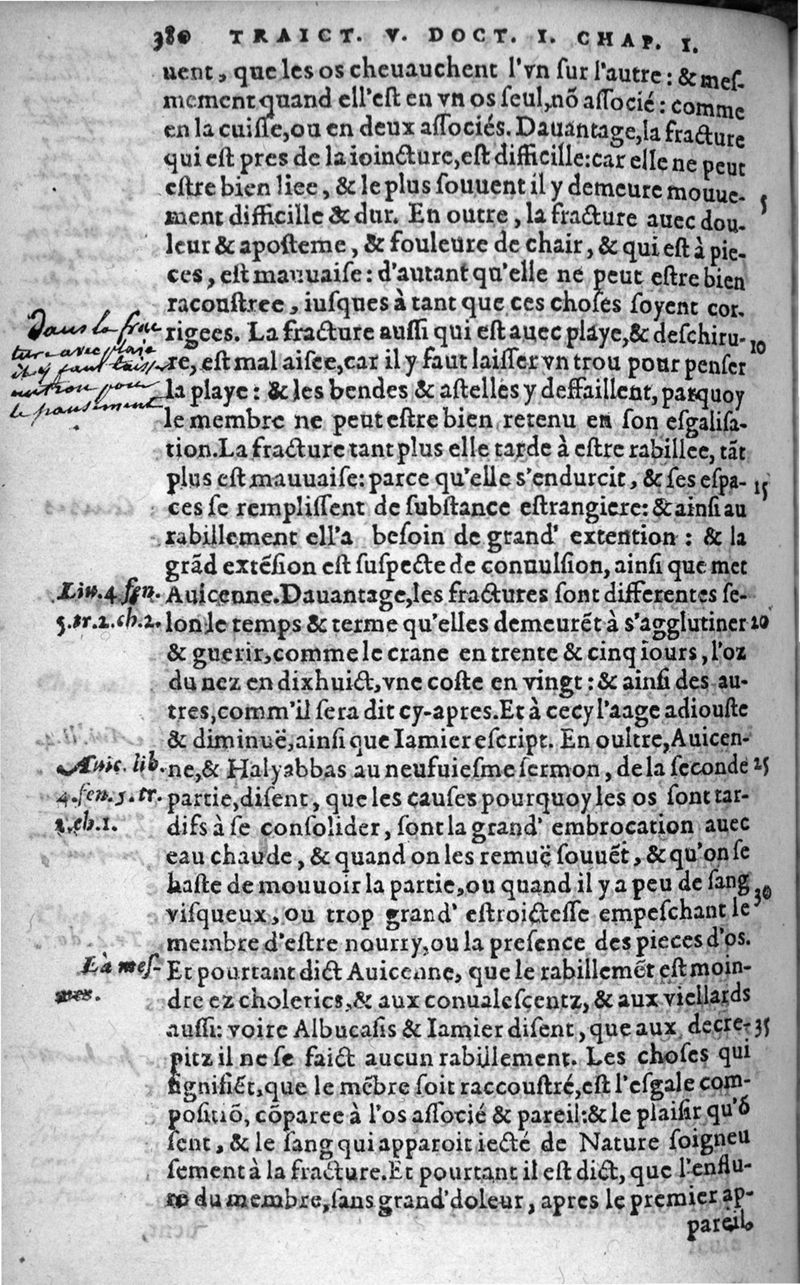 380 TRAICT. V. DOCT. I. CHAP. I.
uent, que les os cheuauchent l'vn ſur l'autre: & meſ-
mement quand ell'eſt en vn os ſeul, nõ aſſocié: comme
en la cuiſſe, ou en deux aſſociés. Dauantage, la fracture
qui eſt pres de la ioincture, eſt difficille: car elle ne peut
eſtre bien liee, & le plus ſouuent il y demeure mouue-
5
ment difficille & dur. En outre, la fracture auec dou-
leur & apoſteme, & fouleure de chair, & qui eſt à pie-
ces, eſt mauuaiſe: d'autant qu'elle ne peut eſtre bien
raconſtree, iuſques à tant que ces choſes ſoyent cor-
Dans la frac
rigees. La fracture auſſi qui eſt auec playe, & deſchiru-
10
ture avec plaie
re, eſt mal aiſee, car il y faut laiſſer vn trou pour penſer
il y faut laiss
la playe: & les bendes & aſtelles y deffaillent, parquoy
un trou pour
le pansement
le membre ne peut eſtre bien retenu en ſon eſgaliſa-
tion. La fracture tant plus elle tarde à eſtre rabillee, tãt
plus eſt mauuaiſe: parce qu'elle s'endurcit, & ſes eſpa-
15
ces ſe rempliſſent de ſubſtance eſtrangiere: & ainſi au
rabillement ell'a beſoin de grand' extention: & la
grãd extẽſion eſt ſuſpecte de conuulſion, ainſi que met
Liu. 4. fen.
Auicenne. Dauantage, les fractures ſont differentes ſe-
5. tr. 2. ch. 2.
lon le temps & terme qu'elles demeurẽt à s'agglutiner
20
& guerir, comme le crane en trente & cinq iours, l'oz
du nez en dixhuict, vne coſte en vingt: & ainſi des au-
tres, comm'il ſera dit cy-apres. Et à cecy l'aage adiouſte
& diminuë, ainſi que Iamier eſcript. En oultre, Auicen-
Auic. lib.
ne, & Halyabbas au neufuieſme ſermon, de la ſeconde
25
4. fen. 5. tr.
partie, diſent, que les cauſes pourquoy les os ſont tar-
ch. 1.
difs à ſe conſolider, ſont la grand' embrocation auec
eau chaude, & quand on les remuë ſouuẽt, & qu'on ſe
haſte de mouuoir la partie, ou quand il y a peu de ſang
30
viſqueux, ou trop grand' eſtroicteſſe empeſchant le
membre d'eſtre nourry, ou la preſence des pieces d'os.
La meſ-
Et pourtant dict Auicenne, que le rabillemẽt eſt moin-
mes.
dre ez cholerics, & aux conualeſcentz, & aux viellards
auſſi: voire Albucaſis & Iamier diſent, que aux decre-
35
pitz il ne ſe faict aucun rabillement. Les choſes qui
ſignifiẽt, que le mẽbre ſoit raccouſtré, eſt l'eſgale com-
poſitiõ, cõparee à l'os aſſocié & pareil: & le plaiſir qu'õ
ſent, & le ſang qui apparoit iecté de Nature ſoigneu
ſement à la fracture. Et pourtant il eſt dict, que l'enflu-
re du membre, ſans grand' doleur, apres le premier ap-
pareil,